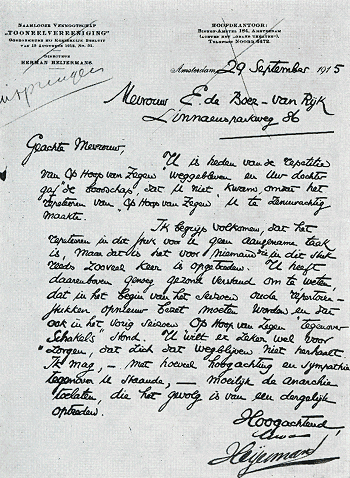 NAAMLOOZE VENNOOTSCHAP
"TOONEELVEREENIGING"
GOEDGEKEURD BIJ KONINKLIJK BESLUIT
VAN 19 AUGUSTUS 1912, No. 51.
DIRECTEUR
HERMAN HEIJERMANS.
HOOFDKANTOOR:
BINNEN-AMSTEL 184, AMSTERDAM
TELEFOON NOORD 6472.
Amsterdam, 29 September 1915
Mevrouw E. de Boer - van Rijk
Linnaeusparkweg 86
Geachte Mevrouw,
U is heden van de repetitie
van "Op Hoop van Zegen" weggebleven en Uw dochter
gaf de boodschap, dat U niet kwam, omdat het
repeteeren van "Op Hoop van Zegen" U te zenuwachtig
maakte.
Ik begrijp volkomen, dat het
repeteren in dit stuk voor U geen aangename taak
is, maar dat is het voor niemand die in dit stuk
reeds zooveel keer is opgetreden. U heeft
daarenboven genoeg gezond verstand om te weten,
dat in het begin van het seizoen oude repertoire-
stukken opnieuw bezet moeten worden en dat
ook in het vorig seizoen "Op Hoop van Zegen" tegenover
"Schakels" stond. U wilt er zeker wel voor
zorgen, dat zich dat wegblijven niet herhaalt.
Ik mag, - met hoeveel hoogachting en sympathie
tegenover U staande, - moeilijk de anarchie
toelaten, die het gevolg is van een dergelijk
optreden.
Hoogachtend
Heijermans